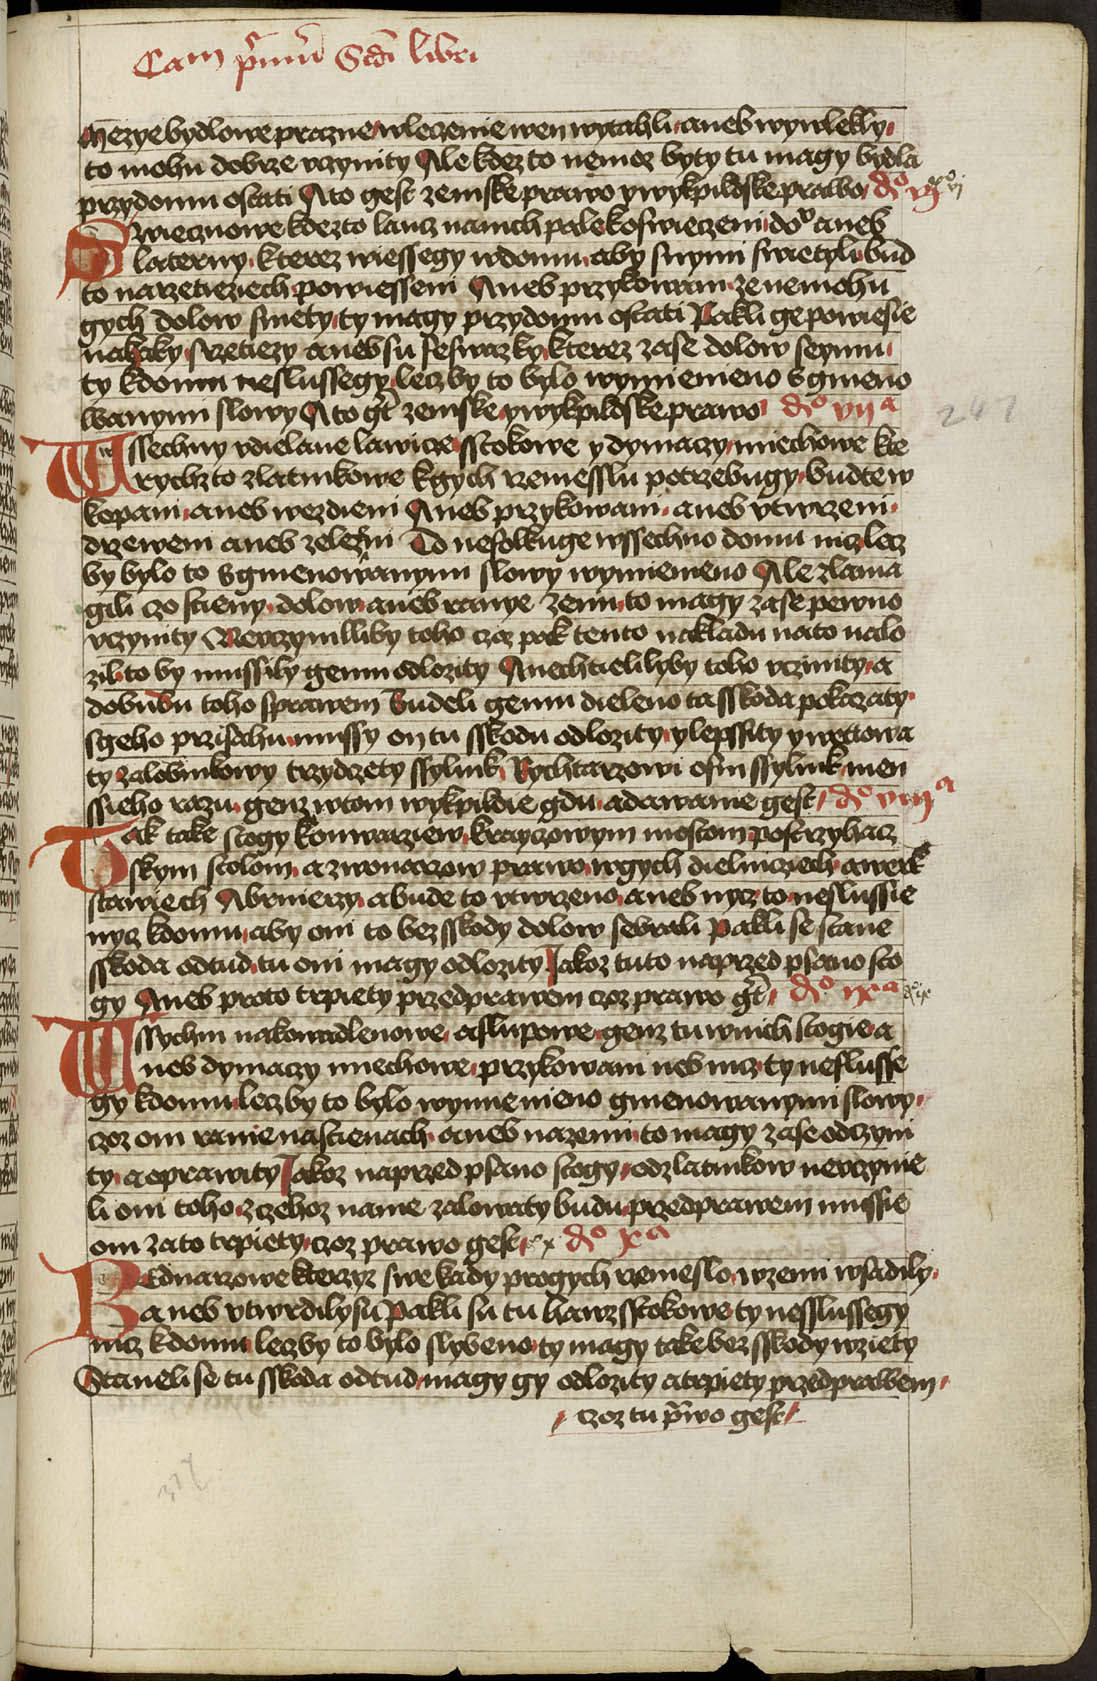 Cam primu Scdi libri
mezye bydlowe prazne wleczenie wen wytahli aneb wywlekly
to mohu dobrze vczynity Ale kdez to nemoz byty tu magy bydla
przydomu ostati A to gest zemske prawo y wykpildske prawo do vi
Swiecznowe kdezto laucz na nich pale k oswieczeni dow aneb
laterny kterez wiessegy wdomu aby s nymi swietyli bud
to na rzetieziech powiesseni Aneb przykowani ze nemohu
gych dolow sniety ty magy przydomu ostati Pakli ge powiesie
na haky s rzetiezy aneb su se swazky kterez zase dolow seymu
ty kdomu neslussegy lecz by to bylo wymiemeno vgmeno
wanymi slowy A to gt zemske y wykpildske prawo do vii a
Wssechny vdielane lawicze sstokowe y dymaczy miechowe kte
rychzto zlatnikowe k gych rzemesslu potrzebugy budte w
kopani aneb wezdieni Aneb przykowani aneb vtwrzeni
drzewem aneb zelezni To nesolkuge wssechno domu nicz lecz
by bylo to vgmenowanymi slowy wymiemeno Ale zlama
gili czo stieny dolow aneb ranye zemi to magy zase pewno
vczynity Neuczynilliby toho czoz pak tento nakladu na to nalo
zil to by mussily gemu odlozity A nechtielilyby toho vczinity a
dobudu toho sprawem Budeli gemu dieleno ta sskoda pokazaty
s geho przisahu mussy on tu sskodu odlozity y lepssity y wettowa
ty zalobnikowy trzydczety ssylink Rychtarzowi osm ssylink men
ssieho razu genz w tom wykpildie gdu a dawanie gest do viii a
Tak take stogy konwarziew krayczowym mostom postrzyhacz
skym stolom a zwonarzow prawo w gych dielniczech a werk
stawiech A brnierzy a bude to vtwrzeno aneb nycz to neslussie
nycz kdomu aby oni to bez sskody dolow sebrali Pakli se stane
sskoda odtud tu oni magy odlozity Jakoz tuto naprzed psano sto
gy Aneb proto trpiety przed prawem czoz prawo gt do ix a
Wssychni nakowadlenowe a slupowe genz tu w nich stogie a
neb dymaczy miechowe przykowani neb nicz ty neslusse
gy kdomu lecz by to bylo wymiemeno gmenowanymi slowy
czoz oni ranie na stienach aneb na zemi to magy zase odczyni
ty a oprawity Jakoz naprzed psano stogy od zlatnikow neuczynie
li oni toho z czehoz na nie zalowaty budu przed prawem mussie
oni za to trpiety czoz prawo gest do x a
Bednarzowe kterzyz swe kady pro gych rzemeslo w zemi wsadily
aneb vtwrdily su Pakli su tu hawz sstokowe ty nesslussegy
nicz kdomu lecz by to bylo slybeno ty magy take bez sskody wziety
Staneli se tu sskoda odtud magy gy odlozity a trpiety przed prawem
czoz tu prawo gest